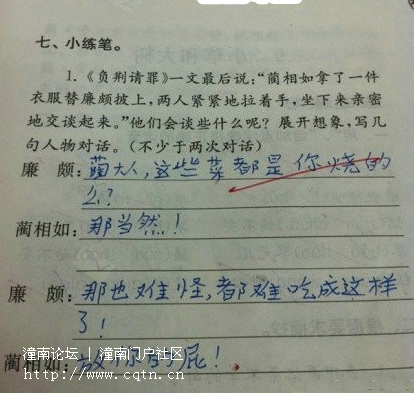 七、小练笔。
1.《负荆请罪》一文最后说:“蔺相如拿了一件
衣服替廉颇披上,两人紧紧地拉着手,坐下来亲密
地交谈起来。”他们会谈些什么呢?展开想象,写几
句人物对话。(不少于两次对话)
廉 颇:蔺大人,这些菜都是你烧的
么?
蔺相如:那当然!
廉 颇:那也难怪,都难吃成这样
了!
蔺相如:放你的屁!
潼南论坛 | 潼南门户社区
http://www.cqtn.cn